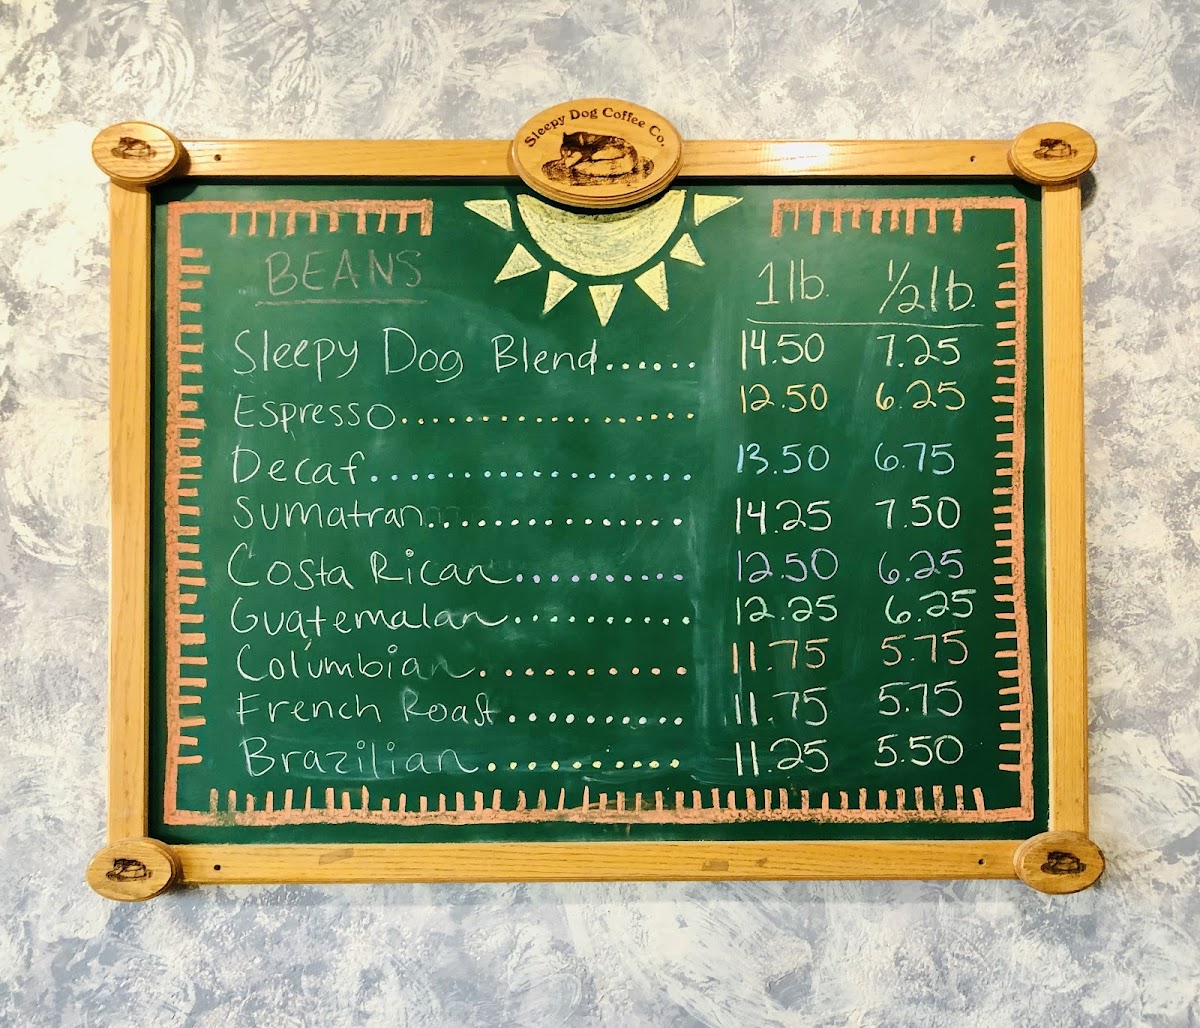 Sleepy Dog Coffee Co.
BEANS 1 lb. 1/2 lb.
Sleepy Dog Blend...... 14.50 7.25
Espresso.................. 12.50 6.25
Decaf.................. 13.50 6.75
Sumatran............... 14.25 7.50
Costa Rican........... 12.50 6.25
Guatemalan........... 12.25 6.25
Columbian........... 11.75 5.75
French Roast.......... 11.75 5.75
Brazilian........... 11.25 5.50